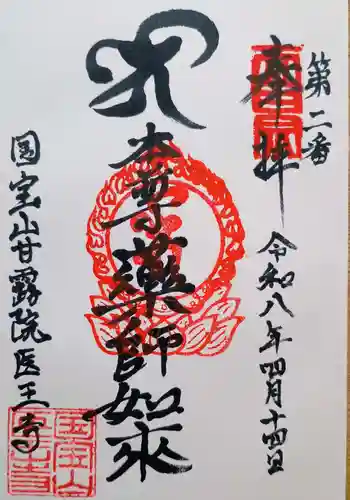 第二番
奉拝
令和八年四月十四日
本尊薬師如来
国宝山甘露院医王寺